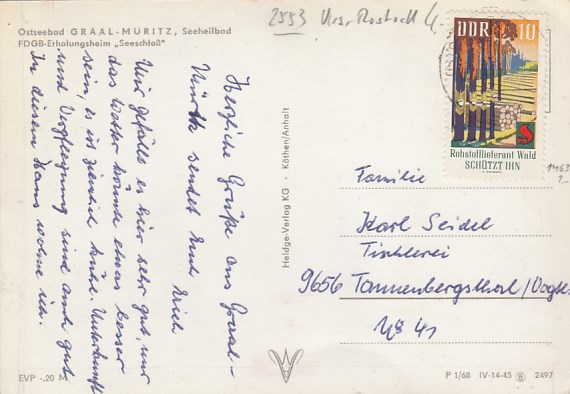 Ostseebad GRAAL-MURITZ, Seeheilbad
FDGB-Erholungsheim „Seeschloß"
2553
Rostock
DDR 10
Rohstofflieferant Wald
SCHÜTZT IHN
1463
1,-
Herzliche Grüße aus Graal-
Müritz sendet Euch Erich
Mir gefällt es hier sehr gut, nur
das Wetter könnte etwas besser
sein, es ist ziemlich kühl. Unterkunft
und Verpflegung sind auch gut
In diesem Haus wohne ich.
Heldge-Verlag KG · Köthen/Anhalt
Familie
Karl Seidel
Tischlerei
9656 Tannenbergsthal/Vogtl.
№ 41
EVP -,20 M
P 1/68 IV-14-45 2497